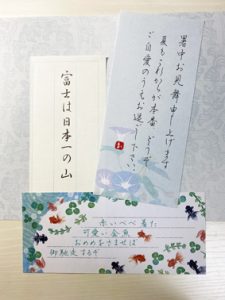 暑中お見舞申し上げます
夏もこれからが本番 どうぞ
ご自愛のうえお過し下さい。
富士は日本一の山
赤いべべ着た
可愛い金魚
おめめをさませば
御馳走するぞ